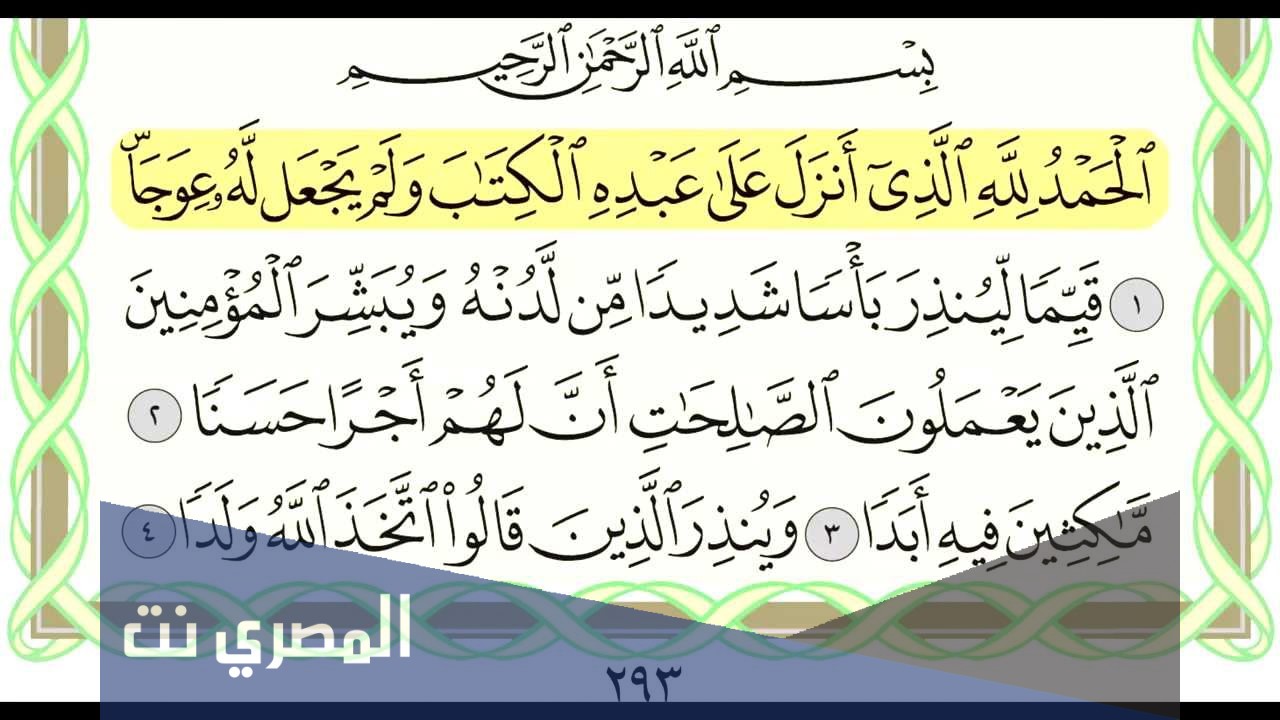 بِسْمِ ٱللَّهِ ٱلرَّحْمَٰنِ ٱلرَّحِيمِ
ٱلْحَمْدُ لِلَّهِ ٱلَّذِىٓ أَنزَلَ عَلَىٰ عَبْدِهِ ٱلْكِتَٰبَ وَلَمْ يَجْعَل لَّهُۥ عِوَجَاۜ
١ قَيِّمًا لِّيُنذِرَ بَأْسًا شَدِيدًا مِّن لَّدُنْهُ وَيُبَشِّرَ ٱلْمُؤْمِنِينَ
ٱلَّذِينَ يَعْمَلُونَ ٱلصَّٰلِحَٰتِ أَنَّ لَهُمْ أَجْرًا حَسَنًا ٢
مَّٰكِثِينَ فِيهِ أَبَدًا ٣ وَيُنذِرَ ٱلَّذِينَ قَالُوا۟ ٱتَّخَذَ ٱللَّهُ وَلَدًا ٤
المصري نت
٢٩٣